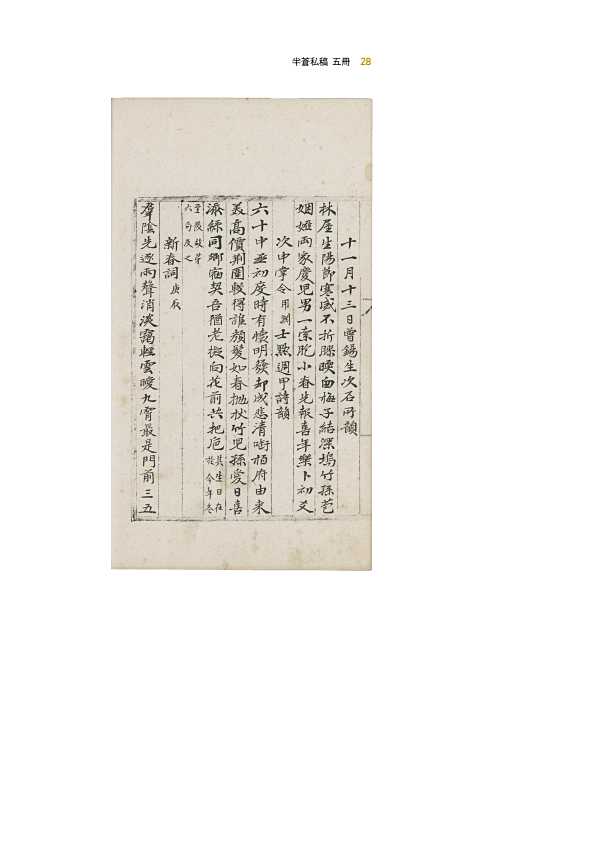 半蒼私稿 五冊 28
十一月十三日曾錫生次石所韻
林屋生陽節寒威不折膠暎面梅子結深塢竹孫苞
姻婭兩家慶兒男一索胞小春先報喜年樂卜初爻
次申掌令用澍士點週甲詩韻
六十中逢初度時有懷明發却成悲清時栢府由來
義高價荊圍較得誰顏髮如春抛杖竹兒孫愛日喜
添絲同鄉宿契吾猶老擬向花前共把巵其生日在
於今年冬
六句及之
新春詞庚辰
羣陰先逐雨聲消淡靄輕雲曖九霄最是門前三五